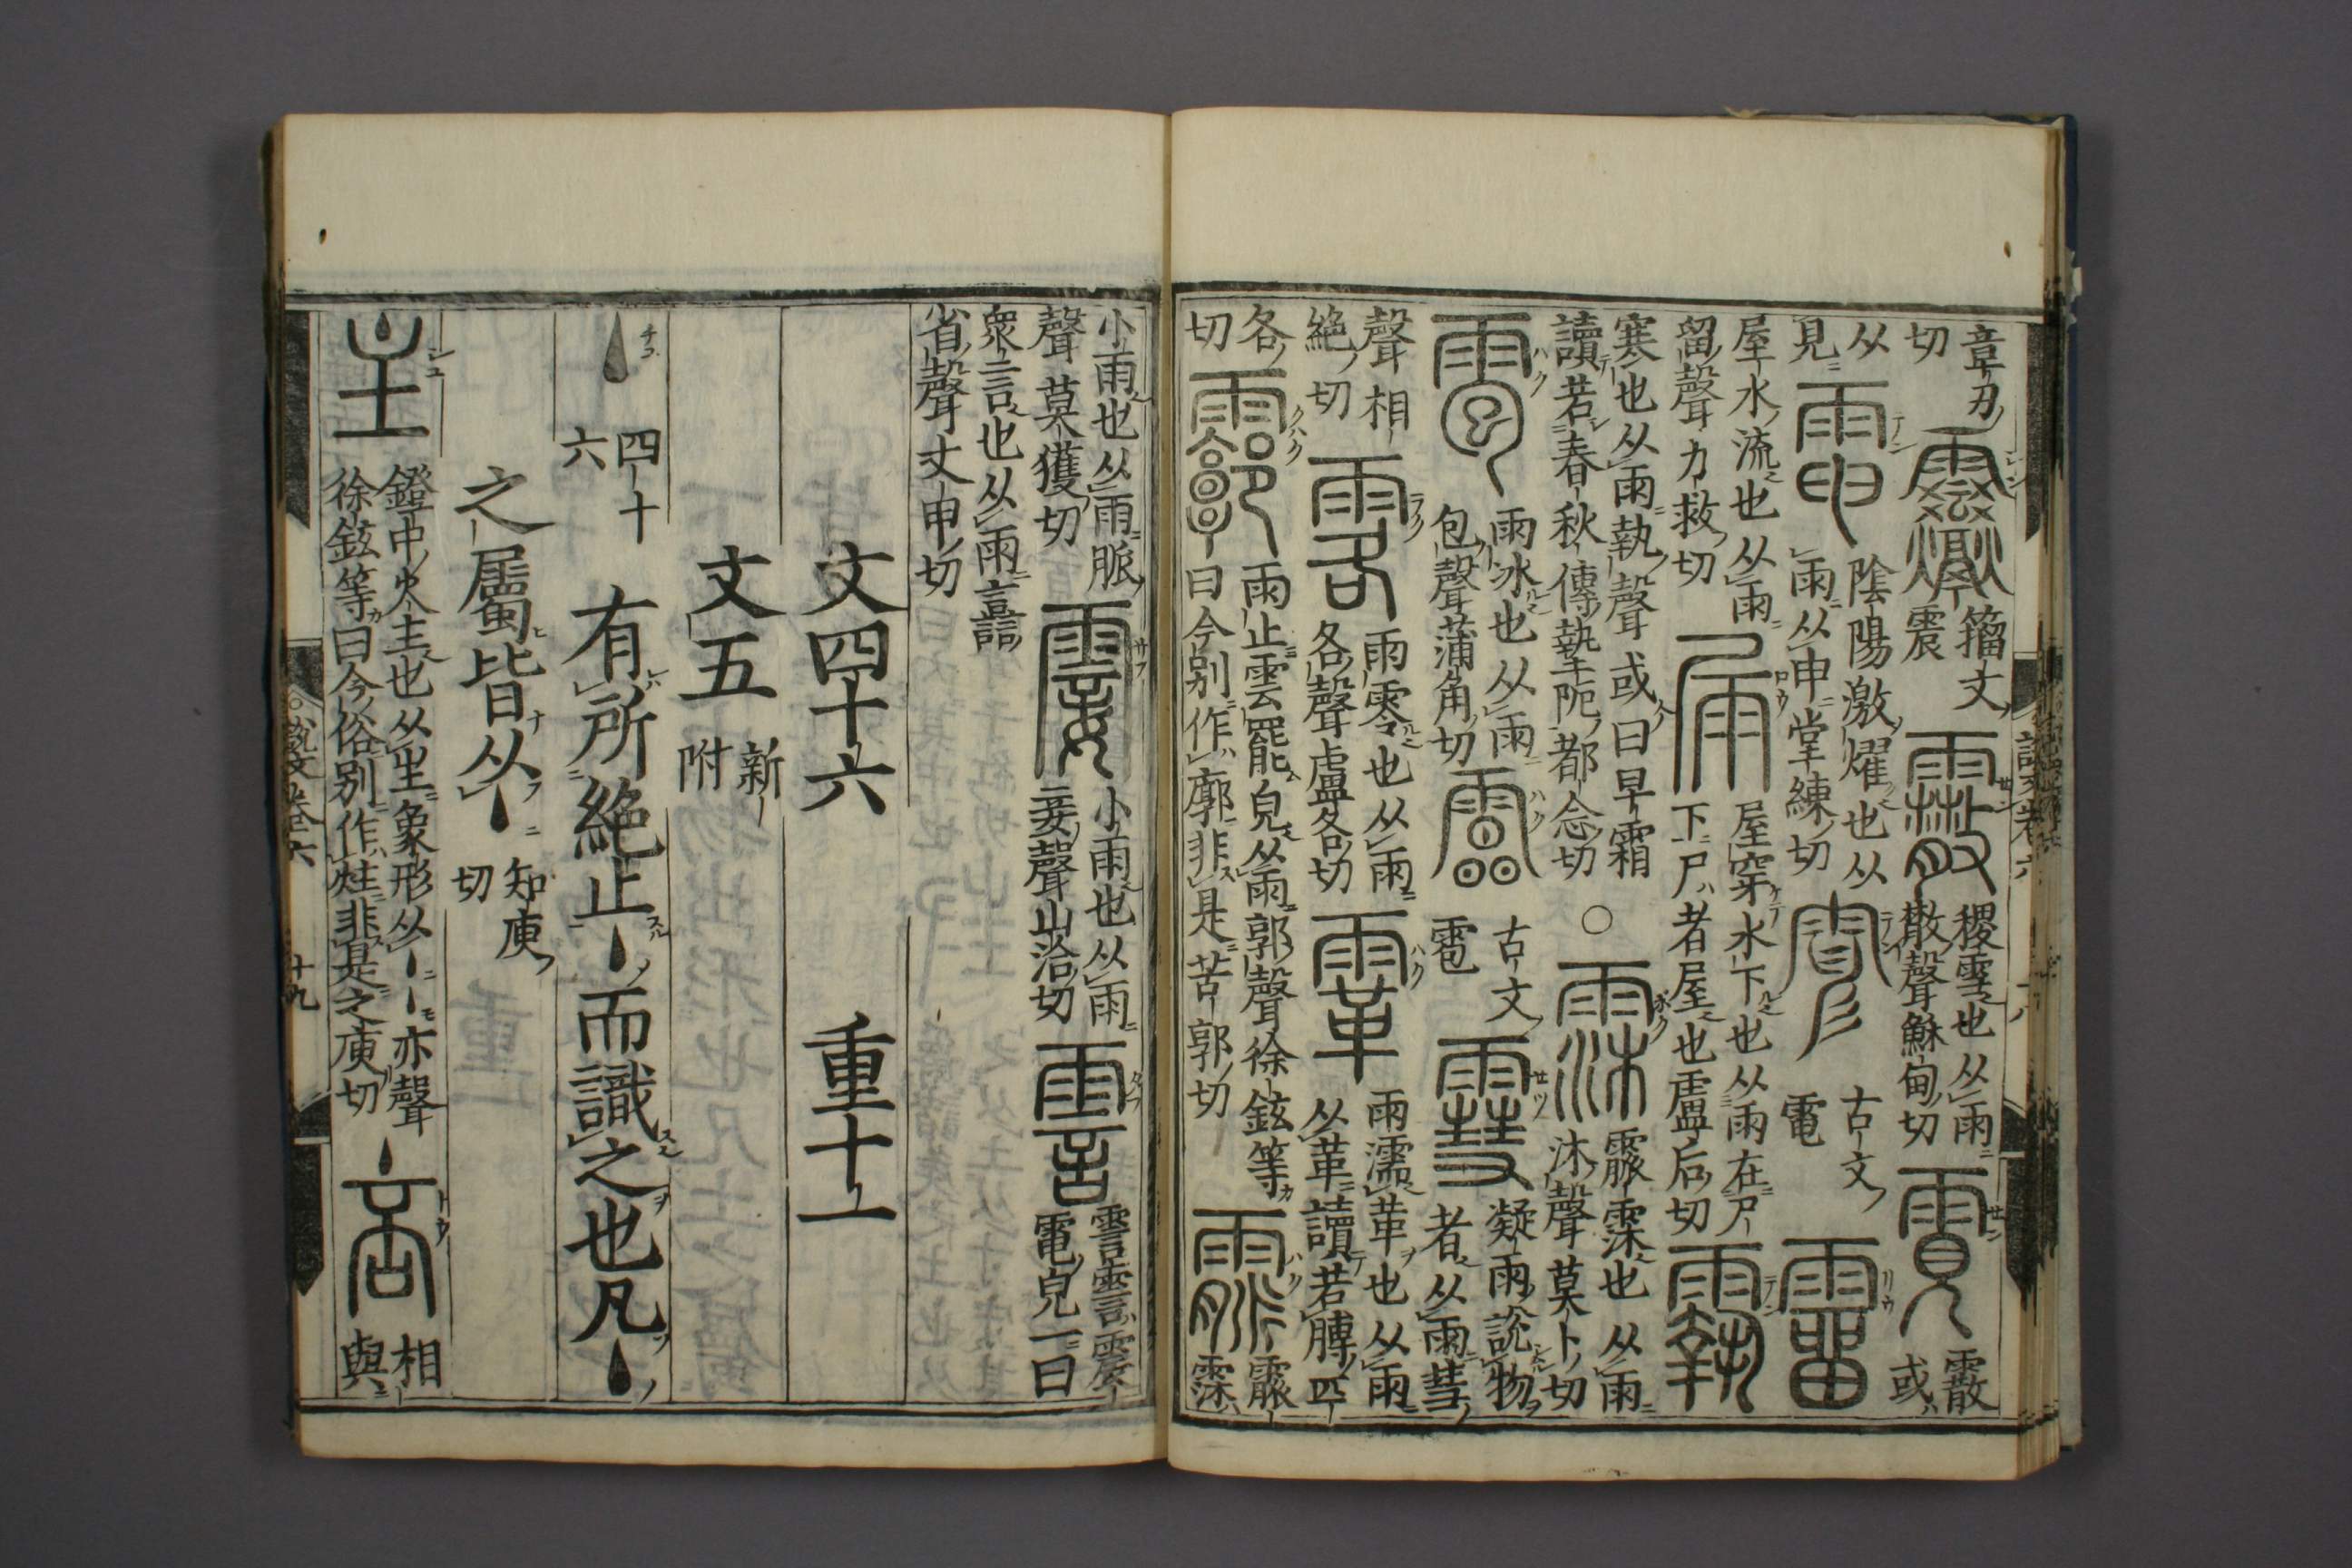 章刀
切
籀文
震
稷雪也从雨
散聲穌甸切
霰
或
从
見
陰陽激燿也从
雨从申堂練切
古文
電
屋水流也从雨
留聲力救切
屋穿水下也从雨在尸
下尸者屋也盧后切
寒也从雨執聲或曰早霜
讀若春秋傳墊阨都念切
○
霡霂也从雨
沐聲莫卜切
雨冰也从雨
包聲蒲角切
古文
雹
凝雨說物
者从雨彗
聲相
絕切
雨零也从雨
各聲盧各切
雨濡革也从雨
从革讀若膊匹
各
切
雨止雲罷皃从雨郭聲徐鉉等
曰今別作廓非是苦郭切
霡
霂
小雨也从雨脈
聲莫獲切
小雨也从雨
妾聲山洽切
霅霅震
電皃一曰
眾言也从雨譶
省聲丈甲切
文四十六 重十一
文五 新附
丶 四十六 有所絕止丶而識之也凡丶
之屬皆从丶 知庾切
鐙中火主也从𡉚象形从丶丶亦聲
徐鉉等曰今俗別作炷非是之庾切
相
與
說文卷六 十九